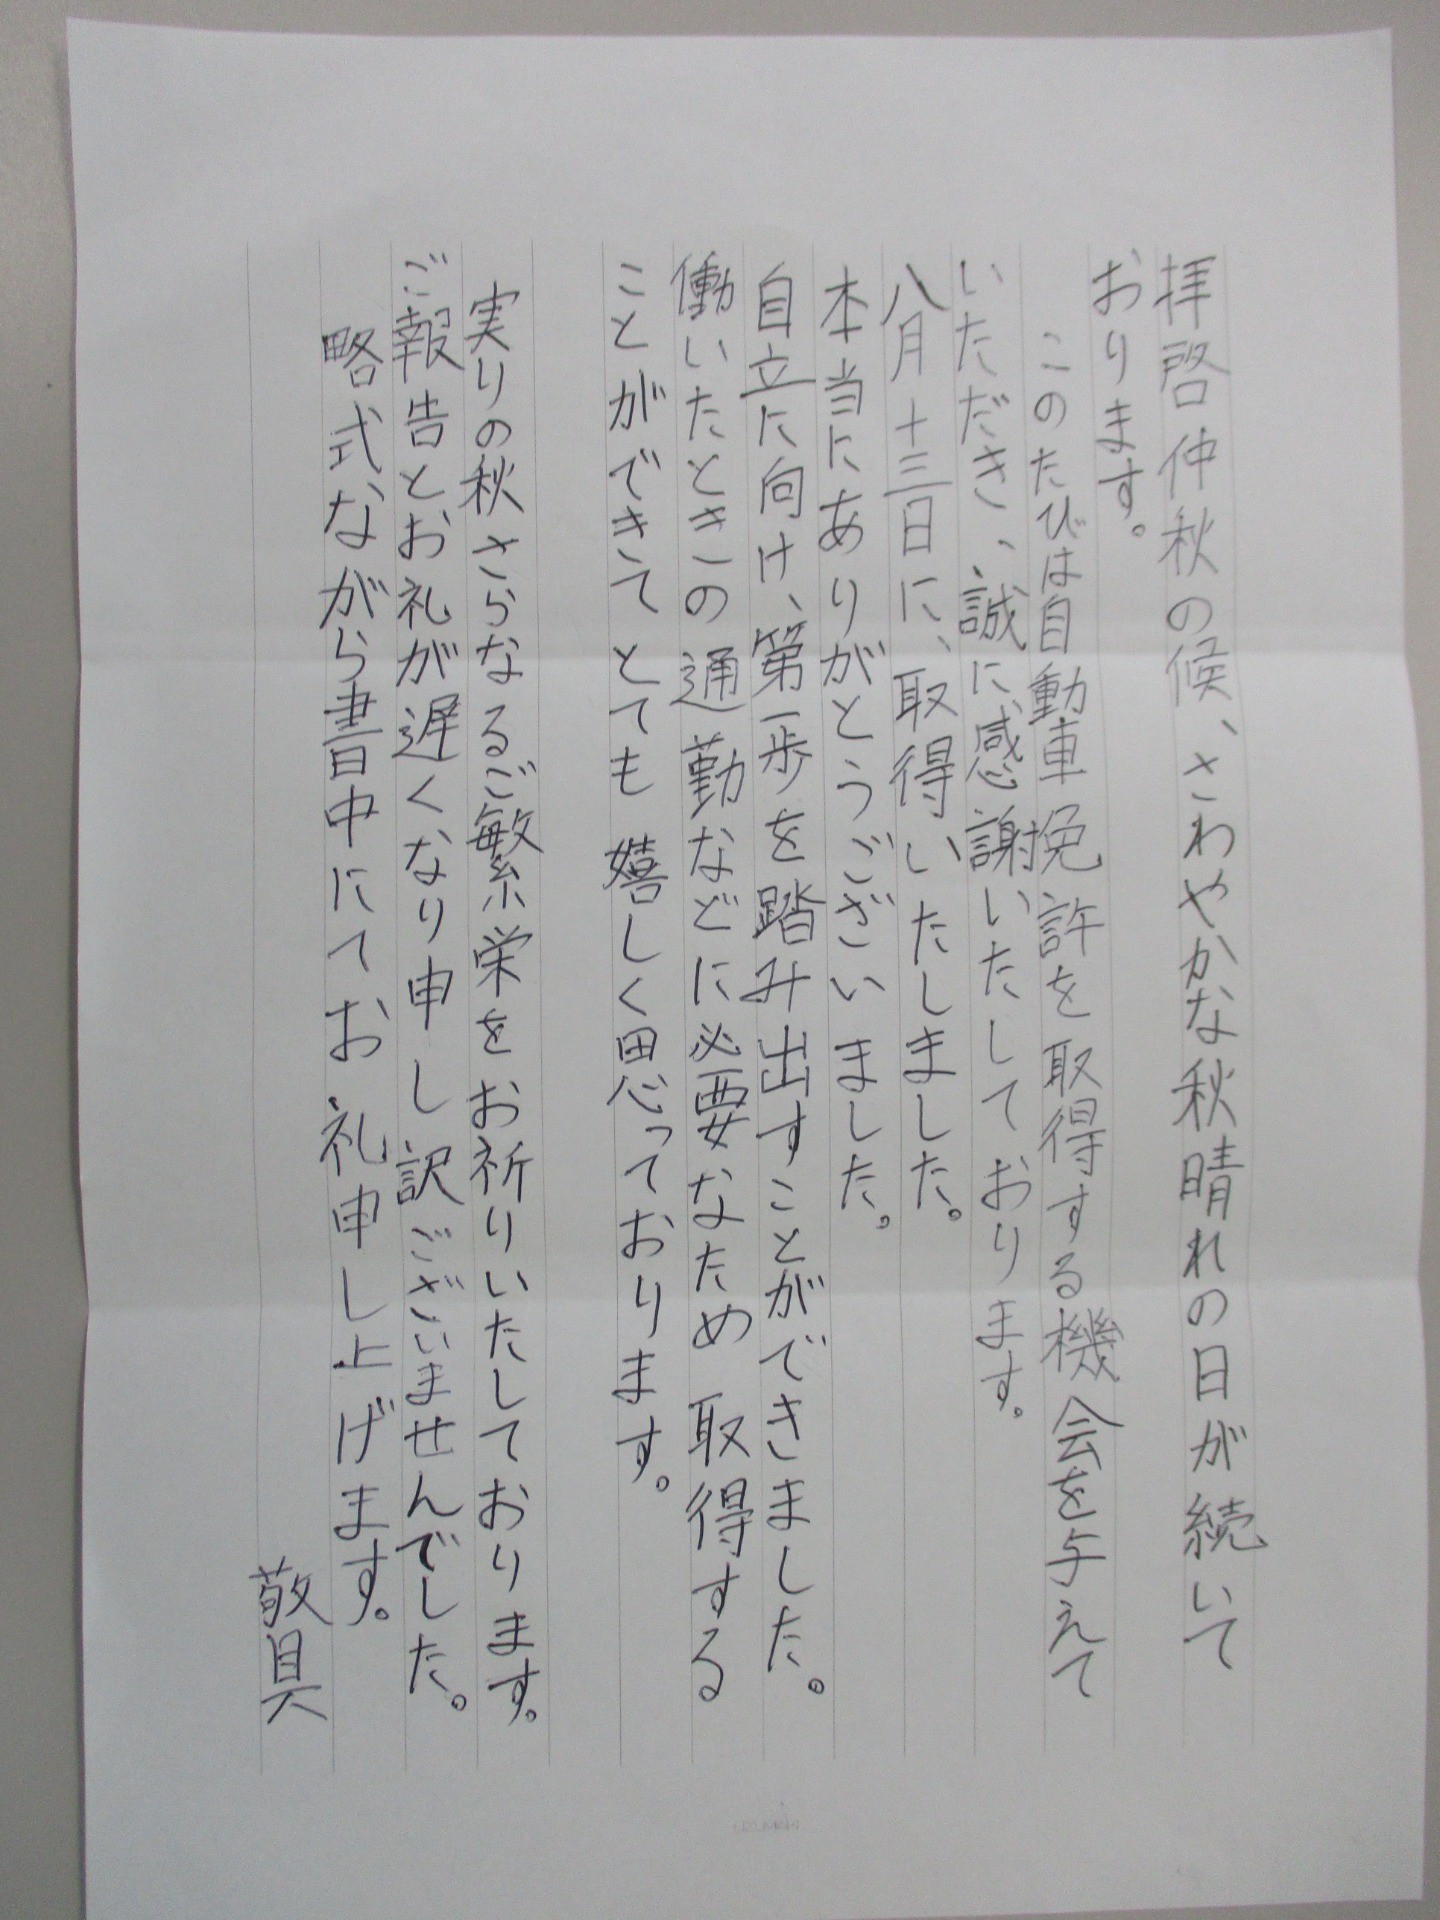 拝啓 仲秋の候、さわやかな秋晴れの日が続いて
おります。
このたびは自動車挽許を取得する機会を与えて
いただき、誠に感謝いたしております。
八月十三日に、取得いたしました。
本当にありがとうございました。
自立に向け、第一歩を踏み出すことができました。
働いたときの通勤などに必要なため 取得する
ことができて とても 嬉しく思っております。
実りの秋 さらなるご繁栄をお祈りいたしております。
ご報告とお礼が遅くなり申し訳ございませんでした。
略式ながら書中にてお礼申し上げます。
敬具